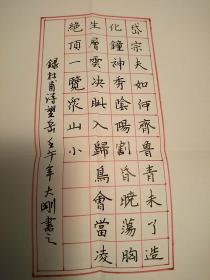 岱宗夫如何齊魯青未了造
化鐘神秀陰陽割昏曉蕩胸
生層雲決眦入歸鳥會當凌
絕頂一覽眾山小
錄杜甫詩望岳壬午年大剛書之